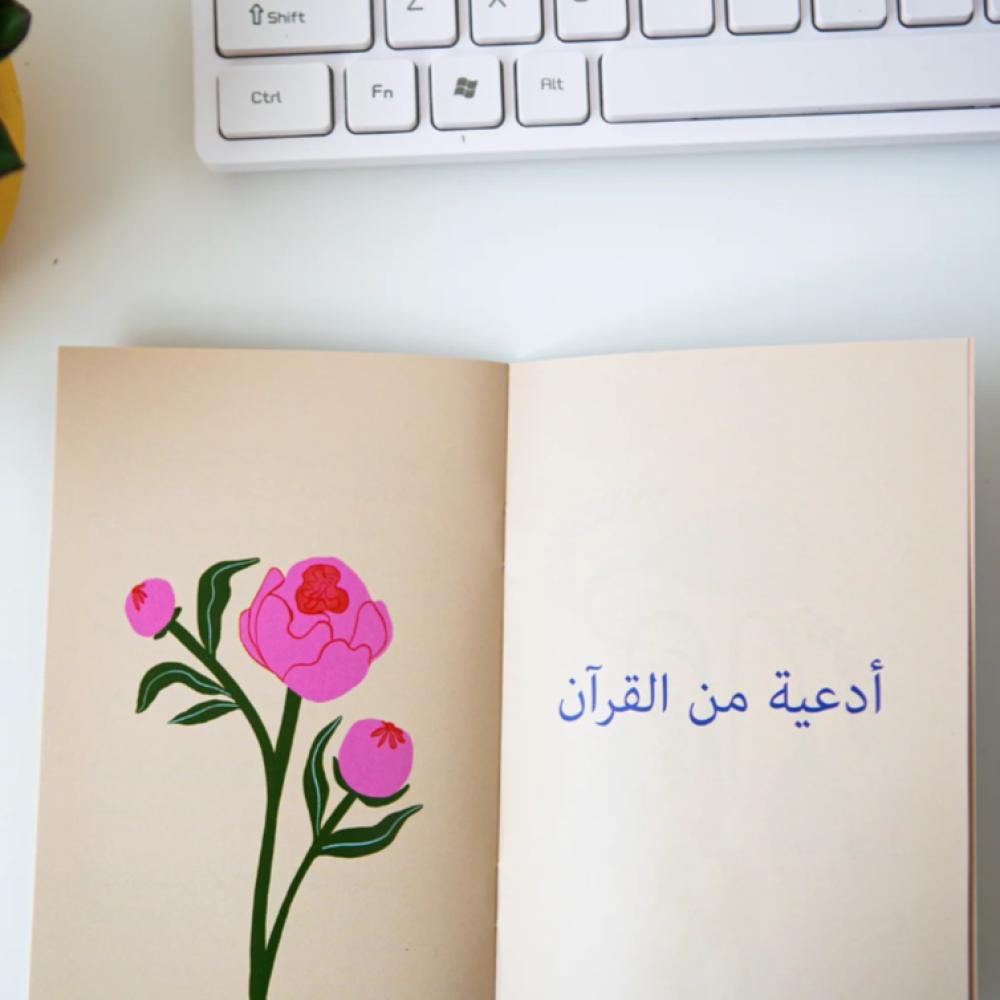 Shift
Ctrl Fn Alt
أدعية من القرآن